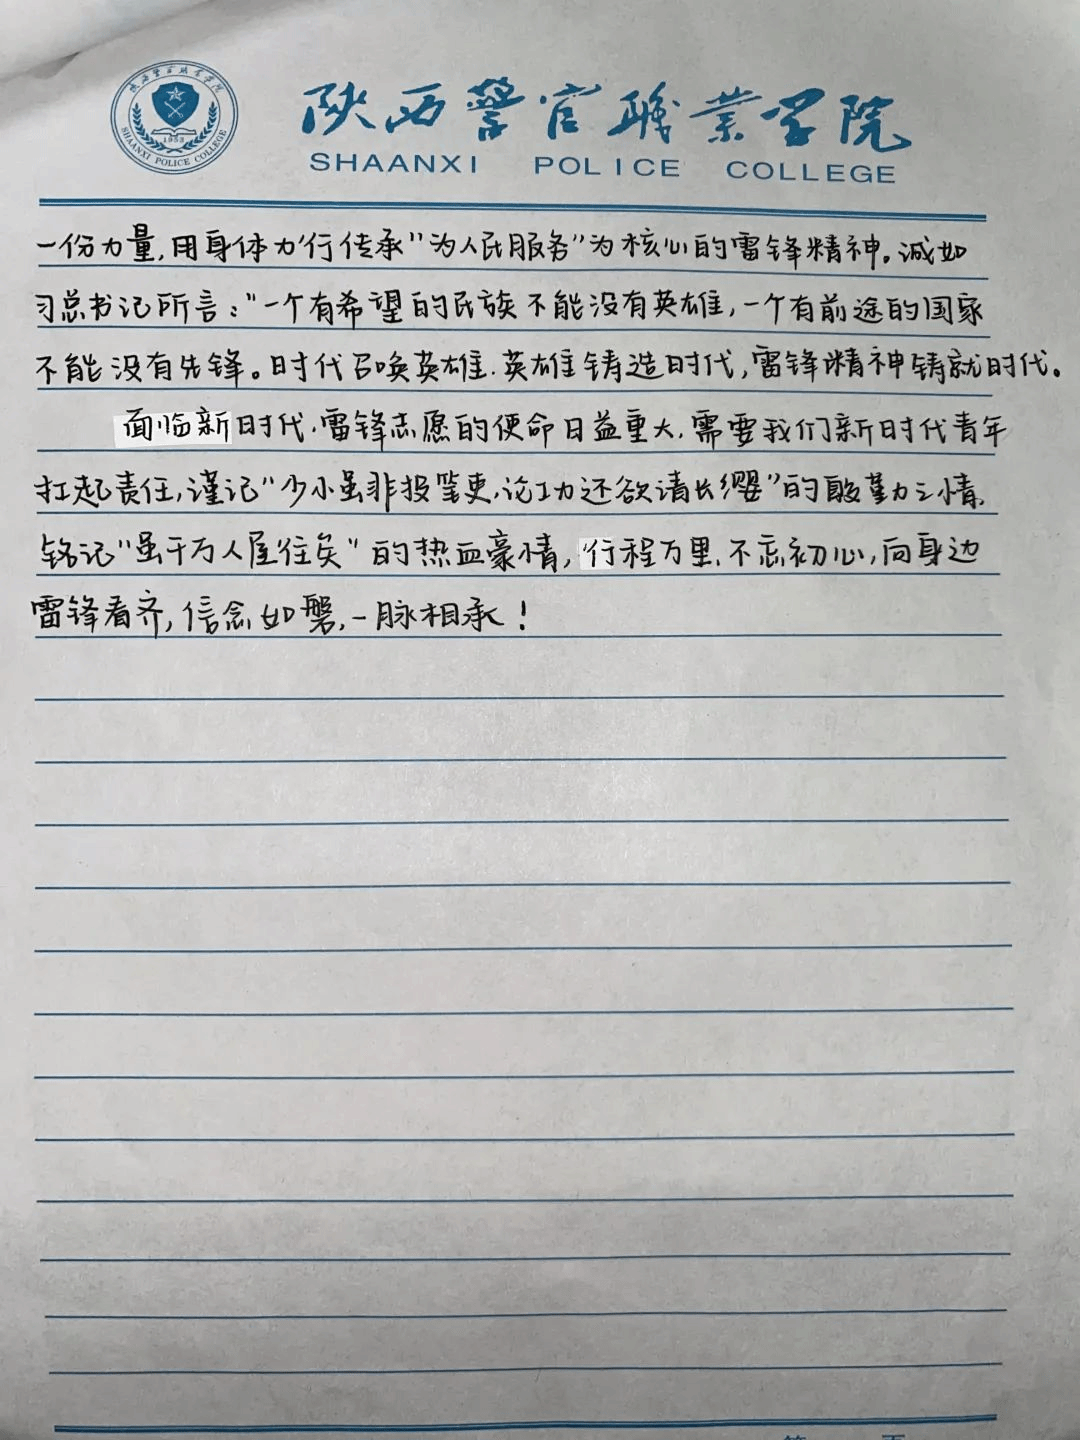 陕西警官职业学院
SHAANXI POLICE COLLEGE
陕西警官职业学院
1953
SHAANXI POLICE COLLEGE
一份力量,用身体力行传承"为人民服务"为核心的雷锋精神。诚如
习总书记所言:"一个有希望的民族不能没有英雄,一个有前途的国家
不能没有先锋。时代召唤英雄,英雄铸造时代,雷锋精神铸就时代。
面临新时代,雷锋志愿的使命日益重大,需要我们新时代青年
扛起责任,谨记"少小虽非投笔吏,论功还欲请长缨"的殷勤之情,
铭记"虽千万人屋往矣"的热血豪情,行程万里,不忘初心,向身边
雷锋看齐,信念如磐,一脉相承!